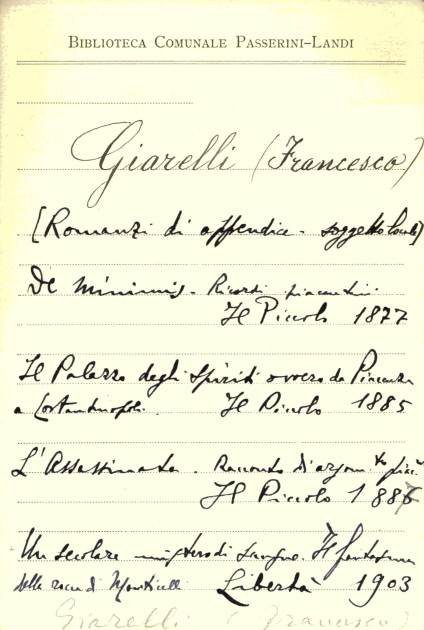 BIBLIOTECA COMUNALE PASSERINI-LANDI
Giarelli (Francesco)
[Romanzi di appendice - soggetto locale]
De minimis - Ricordi piacentini
Il Piccolo 1877
Il Palazzo degli Spiriti ovvero da Piacenza
a Costantinopoli. Il Piccolo 1885
L'Assassinata. Racconto di argom.to piac.
Il Piccolo 188
Un secolare mistero di sangue. Il fantasma
della rocca di Monticelli Libertà 1903
Giarelli (Francesco)